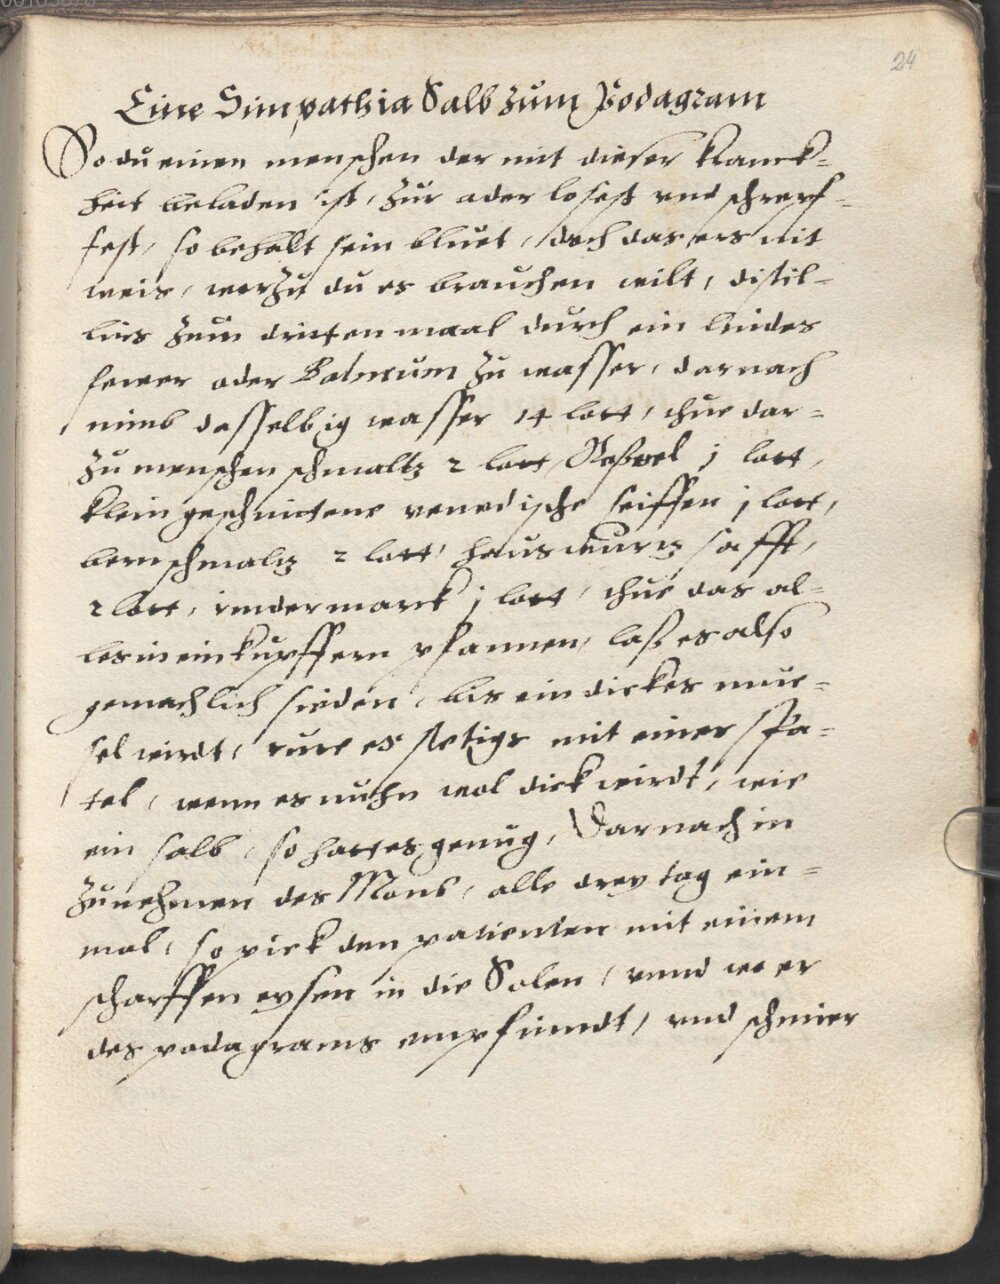 24
Eine Simpathia Salb zum Podagram
So du einen menschen der mit dieser kranck-
heit beladen ist, zur ader losest vnd schrepf-
fest, so behalt sein bluet, doch das ers nit
weis, worzu du es brauchen wilt, distil-
lirs zum dritten maal durch ein lindes
fewer oder Balneum zu wasser, darnach
nimb desselbig wasser 14 lott, thue dar-
zu menschen schmaltz 2 lott, j lott,
klein geschnittene venedische seiffen j lott,
bernschmaltz 2 lott, hauswurtz safft,
2 lott, rindermarck j lott, thue das al-
les in ein kupffern pfannen, laß es also
gemachlich sieden, bis ein dickes mue-
sel wirdt, rure es stetigs mit einer spa-
tel, wenn es nuhn wol dick wirdt, wie
ein salb, so hatt es genug, Darnach in
zunehmen des Mons, alle drey tag ein-
mal, so pick den patienten mit einem
scharffen eysen in die Solen, vnnd wo er
des podagrams empfindt, vnd schmier